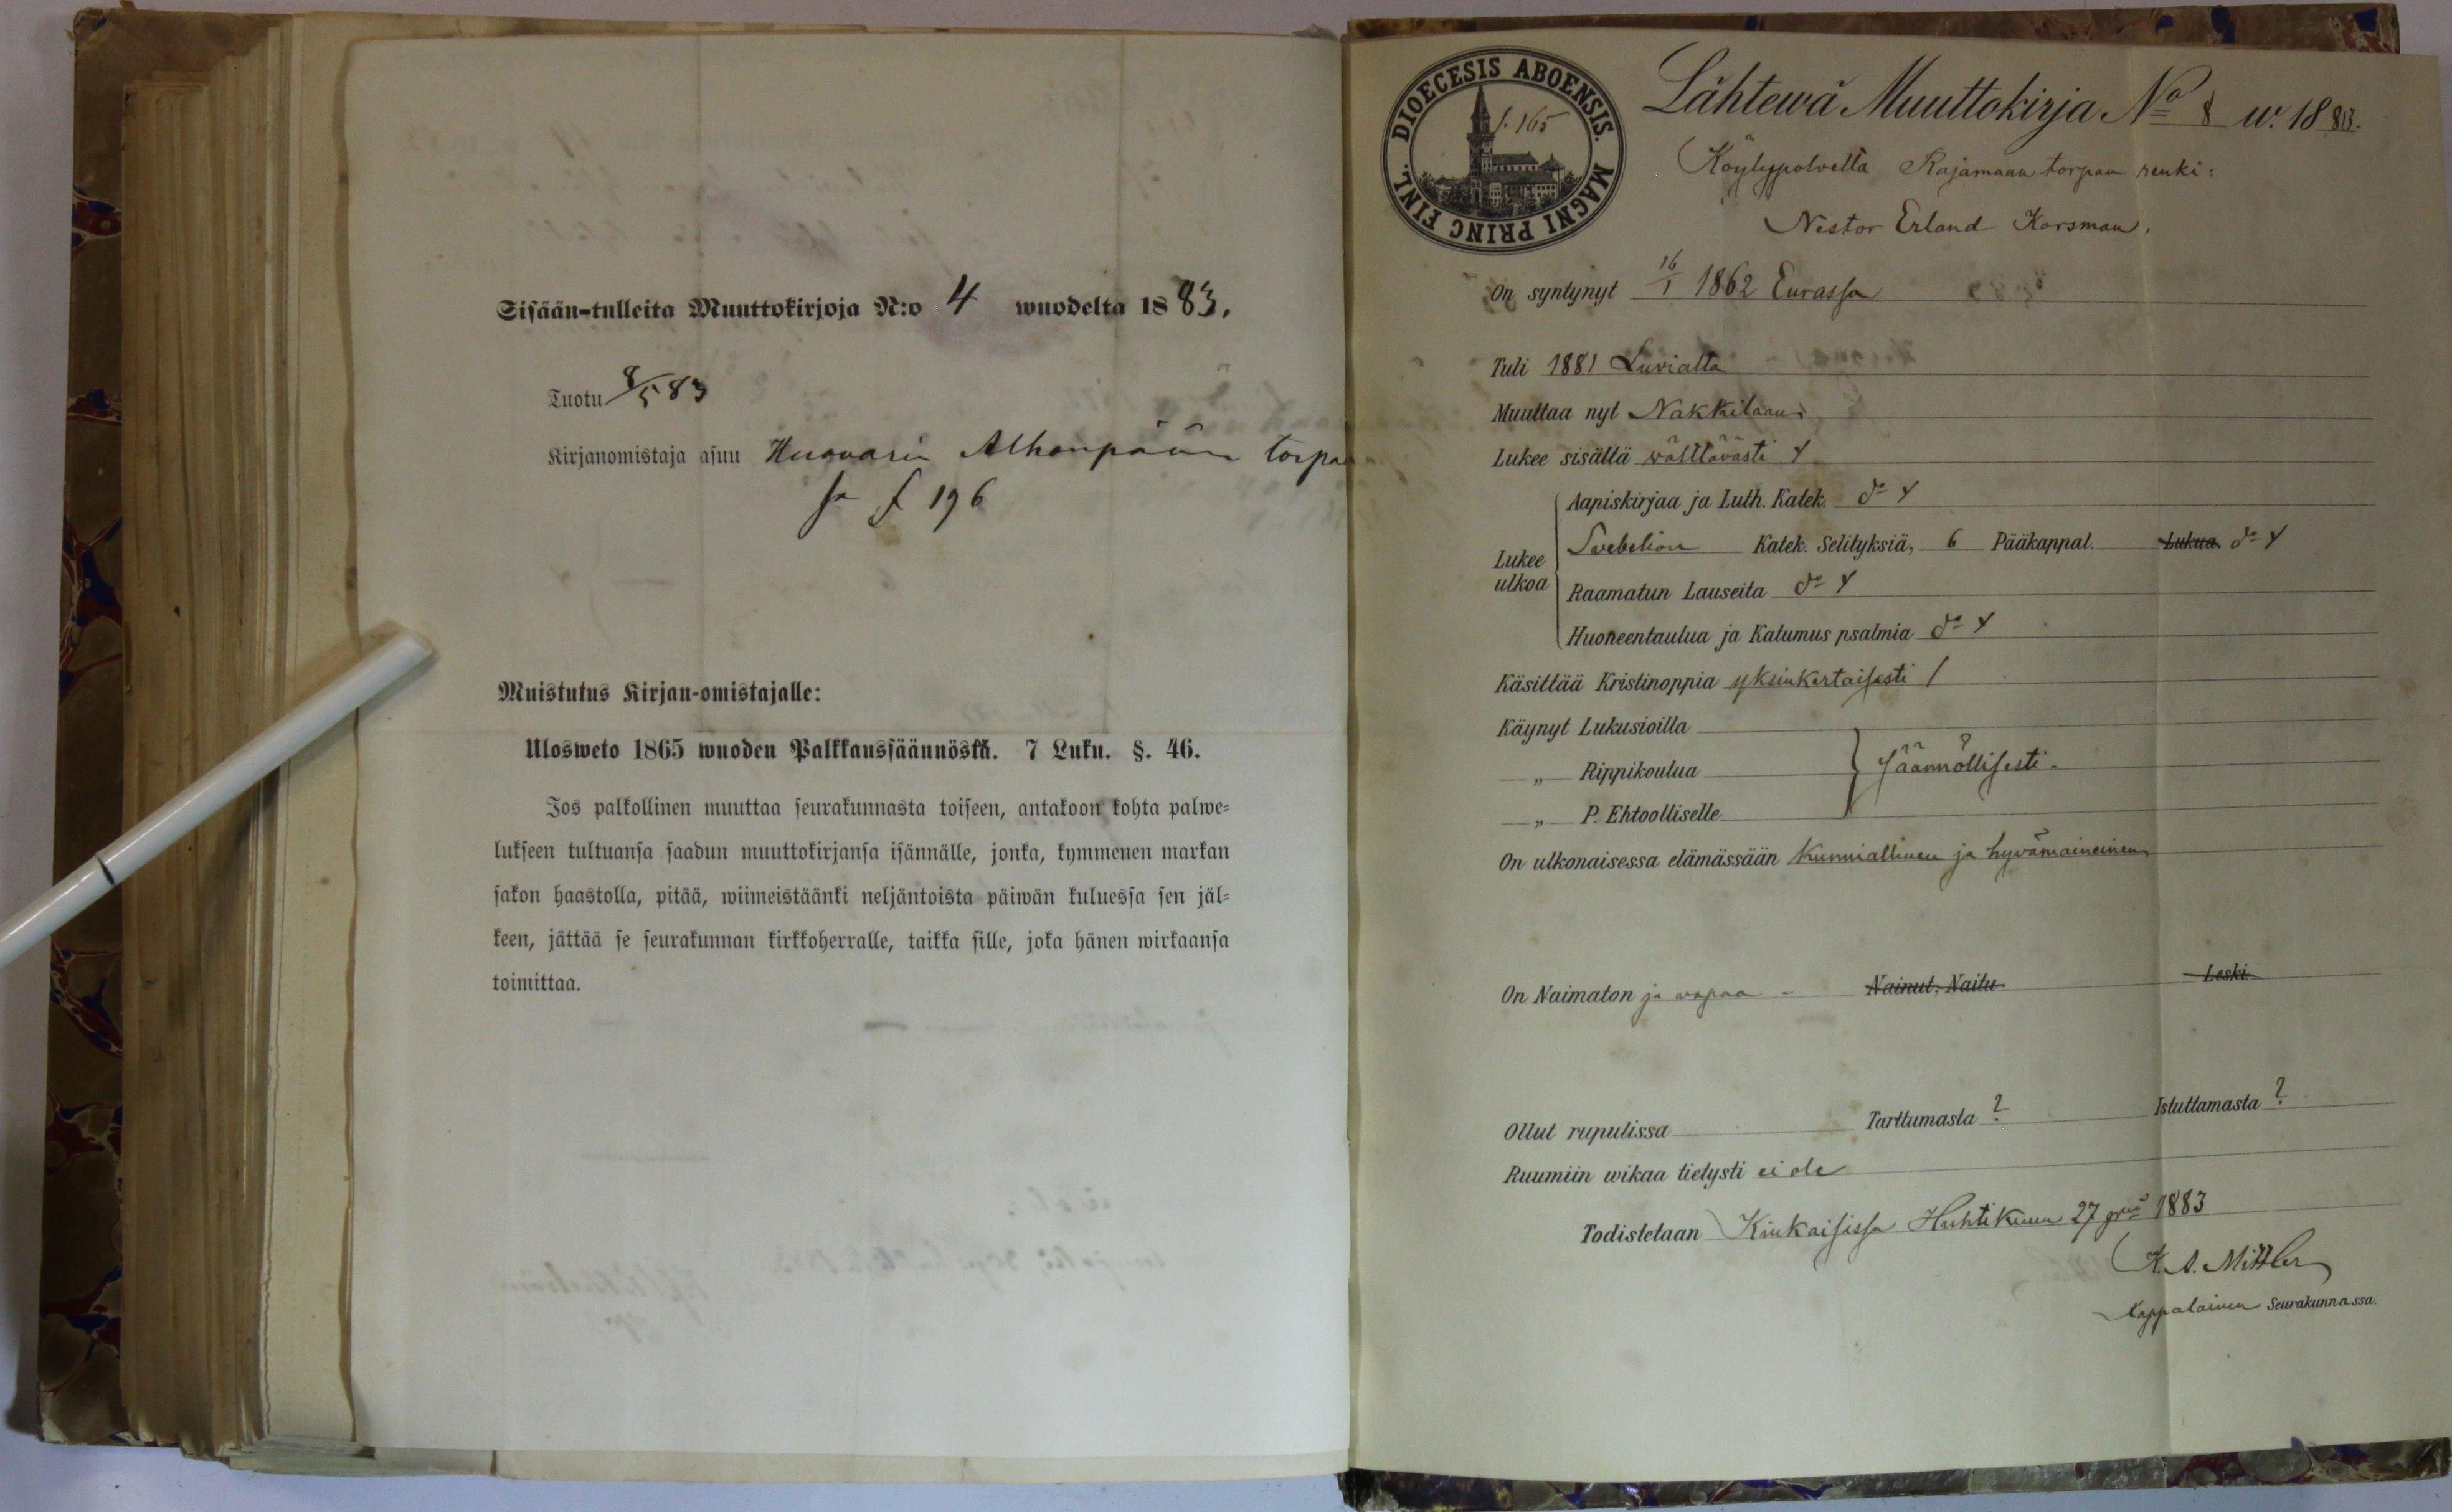 Sisään-tulleita Muuttokirjoja N:o 4 wuodelta 1883.
Tuotu 8/5 83
Kirjanomistaja asuu Huovarin Alhonpään torpas
sa f 196
Muistutus Kirjan-omistajalle:
Ulosweto 1865 wuoden Palkkaussäännöstä. 7 Luku. §. 46.
Jos palkollinen muuttaa seurakunnasta toiseen, antakoon kohta palwe-
lukseen tultuansa saadun muuttokirjansa isännälle, jonka, kymmenen markan
sakon haastolla, pitää, wiimeistäänki neljäntoista päiwän kuluessa sen jäl-
keen, jättää se seurakunnan kirkkoherralle, taikka sille, joka hänen wirkaansa
toimittaa.
DIOECESIS ABOENSIS. MAGNI PRINC FINL.
f. 165
Lähtewä Muuttokirja No 8 w. 1883.
Köylypolvelta Rajamaan torpan renki:
Nestor Erland Korsman.
On syntynyt 16/1 1862 Eurassa
Tuli 1881 Luvialta
Muuttaa nyt Nakkilaan
Lukee sisältä wälttävästi Y
Lukee ulkoa
Aapiskirjaa ja Luth. Katek. do Y
Svebelion Katek. Selityksiä, 6 Pääkappal. Lukua do Y
Raamatun Lauseita do Y
Huoneentaulua ja Katumus psalmia do Y
Käsittää Kristinoppia yksinkertaisesti /
Käynyt Lukusioilla
„ Rippikoulua säännöllisesti.
„ P. Ehtoolliselle
On ulkonaisessa elämässään kunniallinen ja hyvämaineinen
On Naimaton ja vapaa - Nainut, Naitu Leski
Ollut rupulissa Tarttumasta ? Istuttamasta ?
Ruumiin wikaa tietysti ei ole
Todistetaan Kiukaisissa Huhtikuun 27 pnä 1883
K. A. Mittler
Kappalainen Seurakunnassa.